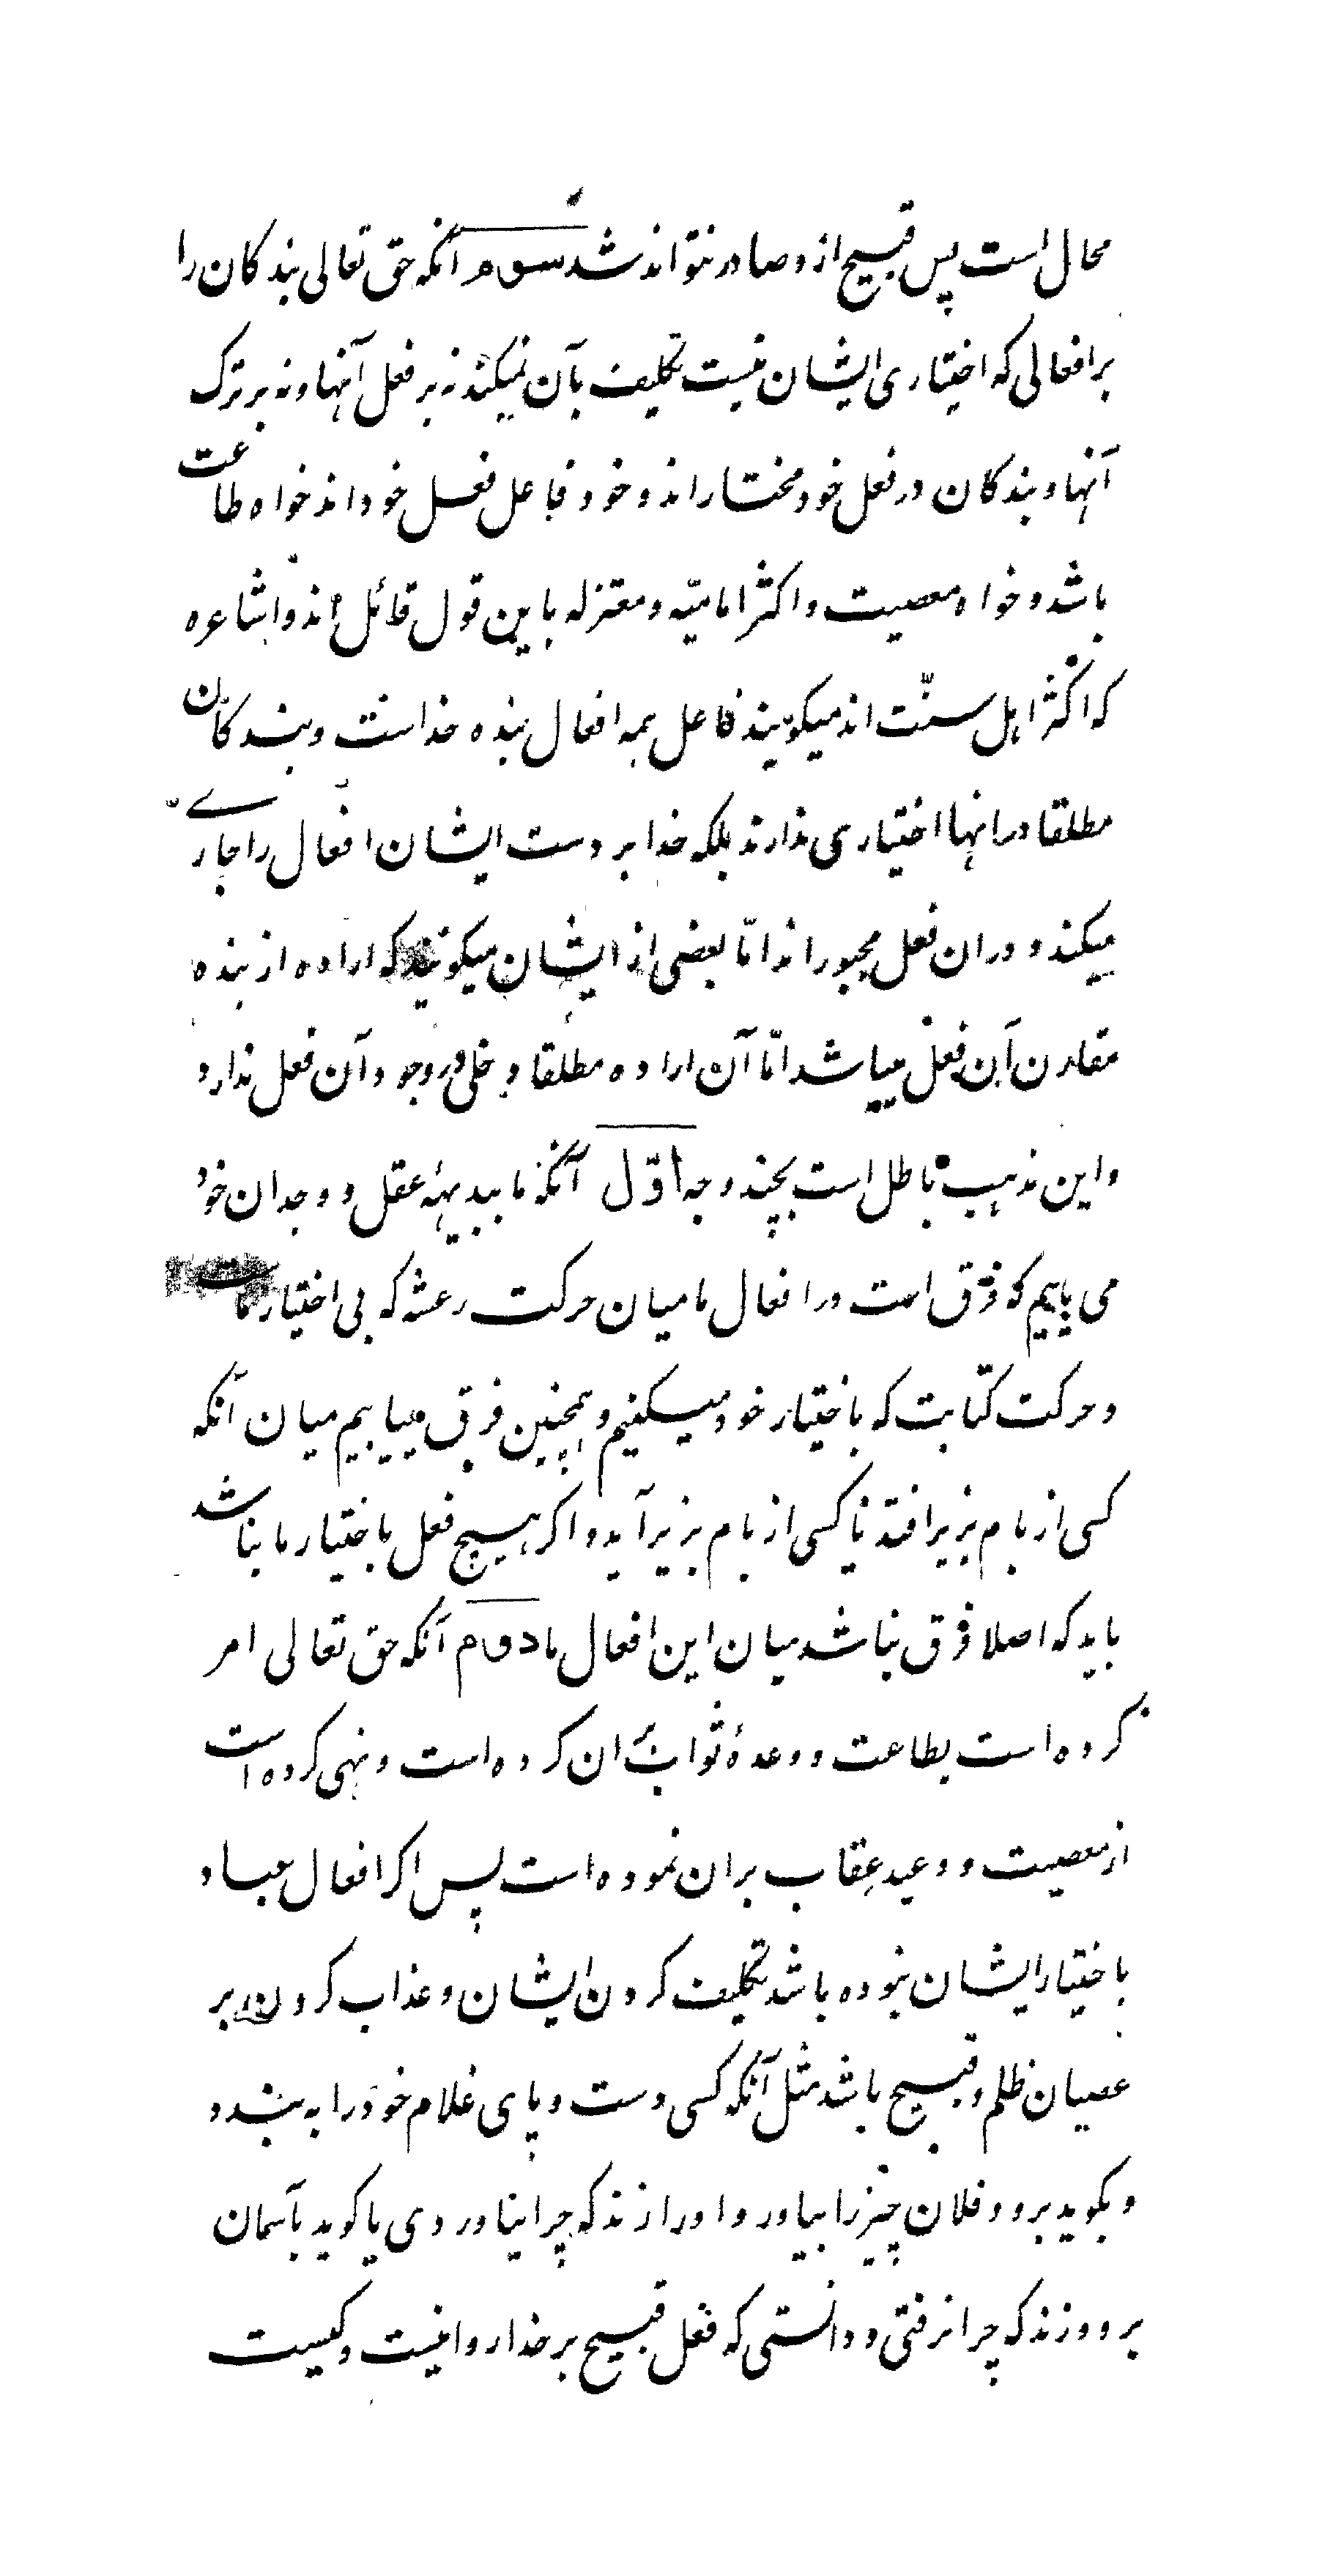 محال است پس قبیح از و صادر نتواند شد سوم آنکه حق تعالی بندکان را
بر افعالی که اختیاری ایشان نیست تکلیف بآن نمیکند نه بر فعل آنها و نه بر ترک
آنها و بندکان در فعل خود مختار اند و خود فاعل فعل خود اند خواه طاعت
باشد و خواه معصیت و اکثر امامیّه و معتزله باین قول قائل اند و اشاعره
که اکثر اهل سنّت اند میکویند فاعل همه افعال بنده خداست و بندکان
مطلقا در انها اختیاری ندارند بلکه خدا بر دست ایشان افعال را جاری
میکند و در ان فعل مجبور اند امّا بعضی از ایشان میکویند که اراده از بنده
مقارن آن فعل میباشد امّا آن اراده مطلقا دخلی در وجود آن فعل ندارد
و این مذهب باطل است بچند وجه اوّل آنکه ما ببدیههٔ عقل و وجدان خود
می یابیم که فرق است در افعال ما میان حرکت رعشه که بی اختیار ماست
و حرکت کتابت که باختیار خود میکنیم و همچنین فرق مییابیم میان آنکه
کسی از بام بزیر افتد یا کسی از بام بزیر آید و اکر هیچ فعل باختیار ما نباشد
باید که اصلا فرق نباشد میان این افعال ما دوم آنکه حق تعالی امر
کرده است بطاعت و وعدهٔ ثواب بر ان کرده است و نهی کرده است
از معصیت و وعید عِقاب بر ان نموده است پس اکر افعال عباد
باختیار ایشان نبوده باشد تکلیف کردن ایشان و عذاب کردن بر
عصیان ظلم و قبیح باشد مثل آنکه کسی دست و پای غلام خود را به بندد
و بکوید برو و فلان چیز را بیاور و او را زند که چرا نیاوردی یا کوید بآسمان
برو و زند که چرا نرفتی و دانستی که فعل قبیح بر خدا روا نیست و کیست